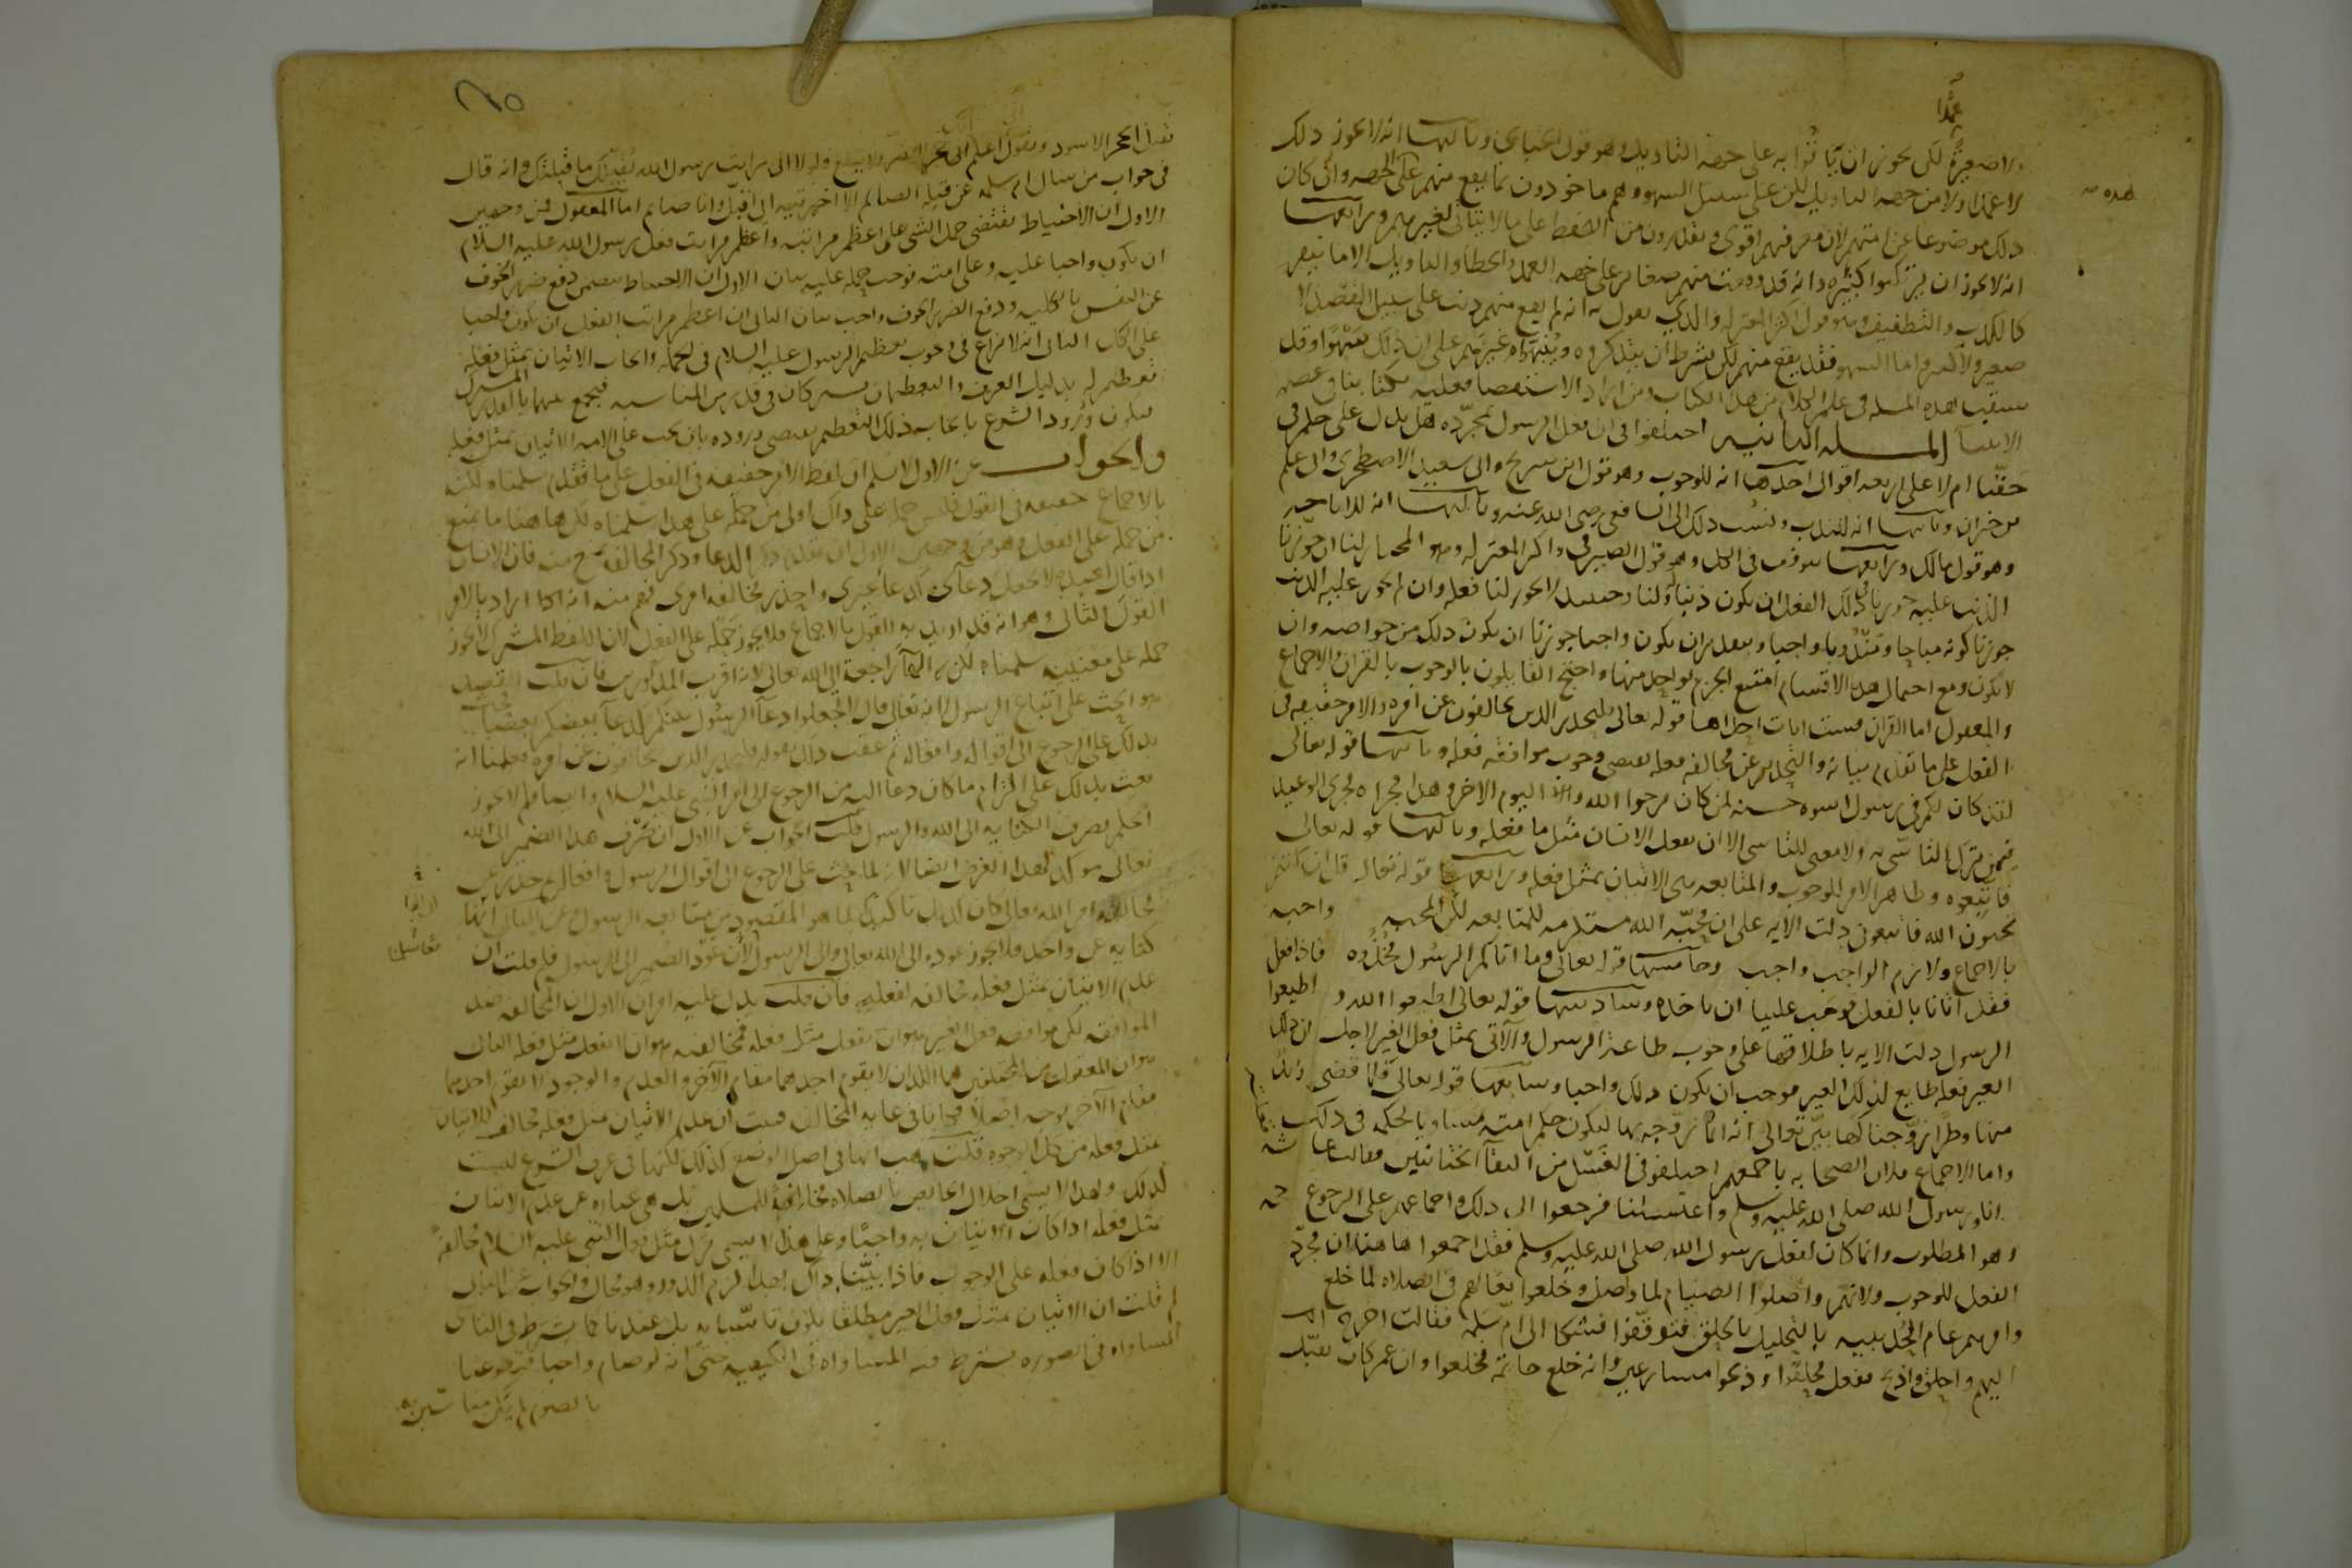 عمدا
ولا صغيرة لكن يجوز ان يأتوا به على جهة التأويل وهو قول الجبائي وثالثها انه لا يجوز ذلك
لا عمدا ولا من جهة التاويل لكن على سبيل السهو وهم ماخوذون بما يقع منهم على الجهة وان كان
هذه
ذلك موضوعا عن امتهم لان معرفتهم اقوى ويقدرون من التحفظ على ما لا يتاتى لغيرهم ورابعها
انه لا يجوز ان يرتكبوا كبيرة وانه قد وقعت منهم صغائر على جهة العمد والخطا والتاويل الا ما ينفر
كالكذب والتطفيف وهو قول اكثر المعتزلة والذي نقول به انه لم يقع منهم ذنب على سبيل القصد لا
صغير ولا كبير واما السهو فقد يقع منهم لكن بشرط ان يتذكروه وينبهوا غيرهم على ان ذلك سهوا وقد
سبقت هذه المسلة في علم الكلام من هذا الكتاب ومن اراد الاستقصا فعليه بكتابنا في عصمة
الانبيا المسلة الثانية اختلفوا في ان فعل الرسول بمجرده هل يدل على حكم في
حقنا ام لا على اربعة اقوال احدها انه للوجوب وهو قول ابن سريج وابي سعيد الاصطخري وابي علي
بن خيران وثانيها انه للندب ونسب ذلك الى الشافعي رضي الله عنه وثالثها انه للاباحة
وهو قول مالك ورابعها يتوقف في الكل وهو قول الصيرفي واكثر المعتزلة وهو المختار لنا ان جوزنا
الذنب عليه جوزنا في ذلك الفعل ان يكون ذنبا له ولنا وحينئذ لا يجوز لنا فعله وان لم يجوز عليه الذنب
جوزنا كونه مباحا ومندوبا وواجبا وبتقدير ان يكون واجبا جوزنا ان يكون ذلك من خواصه وان
لا يكون ومع احتمال هذه الاقسام امتنع الجزم بواحد منها واحتج القايلون بالوجوب بالقران والاجماع
والمعقول اما القران فست ايات احداها قوله تعالى فليحذر الذين يخالفون عن امره والامر حقيقة في
الفعل على ما تقدم بيانه والتحذير عن مخالفة فعله يقتضي وجوب موافقة فعله وثانيها قوله تعالى
لقد كان لكم في رسول اسوة حسنة لمن كان يرجوا الله واليوم الاخر وهذا مجراه مجرى الوعيد
فيمن ترك التاسي به ولا معنى للتاسي الا ان يفعل الانسان مثل ما فعله وثالثها قوله تعالى
فاتبعوه وظاهر الامر للوجوب والمتابعة هي الاتيان بمثل فعله ورابعها قوله تعالى قل ان كنتم
تحبون الله فاتبعوني دلت الاية على ان محبة الله مستلزمة للمتابعة لكن المحبة واجبة
بالاجماع ولازم الواجب واجب وخامسها قوله تعالى وما اتاكم الرسول فخذوه فاذا فعل
فقد اتانا بالفعل فوجب علينا ان ناخذه وسادسها قوله تعالى اطيعوا الله و اطيعوا
الرسول دلت الاية باطلاقها على وجوب طاعة الرسول والآتي بمثل فعل الغير لاجل ان ذلك
الغير فعله طايع لذلك الغير فوجب ان يكون ذلك واجبا وسابعها قوله تعالى فلما قضى زيد
منها وطرا زوجناكها بين تعالى انه انما زوجه بها ليكون حكم امته مساويا لحكمه في ذلك
واما الاجماع فلان الصحابة باجمعهم اختلفوا في الغسل من التقا الختانين فقالت عائشة
انا ورسول الله صلى الله عليه وسلم واغتسلنا فرجعوا الى ذلك واجماعهم على الرجوع حجة
وهو المطلوب وانما كان لفعل رسول الله صلى الله عليه وسلم فقد اجمعوا هاهنا ان مجرد
الفعل للوجوب ولانهم واصلوا الصيام لما واصل وخلعوا نعالهم في الصلاة لما خلع
وامرهم عام الحديبية بالتحليل بالحلق فتوقفوا فشكا الى ام سلمة فقالت اخرج
اليهم واحلق واذبح ففعل فحلقوا وذبحوا مسارعين وانه خلع خاتمه فخلعوا وان عمر كان يقبل
٦٥
تقبل الحجر الاسود ويقول اعلم انك حجر لا تضر ولا تنفع ولولا اني رايت رسول الله يقبلك ما قبلتك وانه قال
في جواب من سال ام سلمة عن قبلة الصائم الا اخبرتيه اني اقبل وانا صائم اما المعقول فمن وجهين
الاول ان الاحتياط يقتضي حمل الشي على اعظم مراتبه واعظم مراتب فعل رسول الله عليه السلام
ان يكون واجبا عليه وعلى امته فوجب حمله عليه بيان الاول ان الاحتياط يتضمن دفع ضرر الخوف
عن النفس بالكلية ودفع الضرر الخوف واجب بيان الثاني ان اعظم مراتب الفعل ان يكون واجبا
على الكل الثاني انه لا نزاع في وجوب تعظيم الرسول عليه السلام في الجملة وايجاب الاتيان بمثل فعله
تعظيم له بدليل العرف والتعظيمان يشتركان في قدر من المناسبة فيجمع بينهما بالقدر المشترك
فيكون ورود الشرع بايجاب ذلك التعظيم يقتضي وروده بان يجب على الامة الاتيان بمثل فعله
والجواب عن الاول لا نسلم ان لفظ الامر حقيقة في الفعل على ما تقدم سلمناه لكنه
بالاجماع حقيقة في القول فليس حمله على ذاك اولى من حمله على هذا سلمناه لكن هاهنا ما يمنع
من حمله على الفعل وهو من وجهين الاول ان تقدم ذكر الدعا وذكر المخالفة يمنع منه فان الانسان
اذا قال لعبده لا تجعل دعائي كدعا غيري واحذر مخالفة امري فهم منه انه انما اراد بالامر
القول الثاني وهو انه قد اريد به القول بالاجماع فلا يجوز حمله على الفعل لان اللفظ المشترك لا يجوز
حمله على معنييه سلمناه لكن الهآ راجعة الى الله تعالى لانه اقرب المذكورين فان قلت القصد
هو الحث على اتباع الرسول لانه تعالى قال لا تجعلوا دعآ الرسول بينكم كدعآ بعضكم بعضا فحث
بذلك على الرجوع الى اقواله وافعاله ثم عقب ذلك بقوله فليحذر الذين يخالفون عن امره فعلمنا انه
بعث بذلك على التزام ما كان دعا اليه من الرجوع الى امر النبي عليه السلام وايضا فلم لا يجوز
الحكم بصرف الكناية الى الله والرسول قلت الجواب عن الاول ان صرف هذا الضمير الى الله
تعالى موكد لهذا الغرض ايضا لانه لما حث على الرجوع الى اقوال الرسول وافعاله ثم حذر عن
مخالفة امر الله تعالى كان ذلك تاكيدا لما هو المقصود من متابعة الرسول وعن الثاني ان الها
كناية عن واحد فلا يجوز عوده الى الله تعالى والى الرسول لان عود الضمير الى الرسول فلم قلت ان
عدم الاتيان بمثل فعله مخالفة لفعله فان قلت يدل عليه امران الاول ان المخالفة ضد
الموافقة لكن موافقة فعل الغير هو ان يفعل مثل فعله فمخالفته هو ان لا يفعل مثل فعله الثاني
هو ان المعقول من المختلفين هما اللذان لا يقوم احدهما مقام الآخر والعدم والوجود لا يقوم احدهما
مقام الآخر بوجه اصلا فكانا في غاية المخالفة فثبت ان عدم الاتيان بمثل فعله مخالفة للاتيان
بمثل فعله من كل الوجوه قلت هب انها في اصل الوضع كذلك لكنها في عرف الشرع ليست
كذلك ولهذا لا يسمى اخلال الحائض بالصلاة مخالفة للمسلمين بل هي عبارة عن عدم الاتيان
بمثل فعله اذا كان الاتيان به واجبا وعلى هذا لا يسمى ترك مثل فعل النبي عليه السلام مخالفة
الا اذا كان فعله على الوجوب فاذا بينا ذاك بهذا لزم الدور وهو محال والجواب عن الثاني
لم قلت ان الاتيان بمثل فعل الغير مطلقا يكون تاسيا به بل عندنا كما يشترط في التاسي
المساواة في الصورة يشترط فيه المساواة في الكيفية حتى انه لو صام واجبا فتطوعنا
بالصوم لم يكن متاسين به